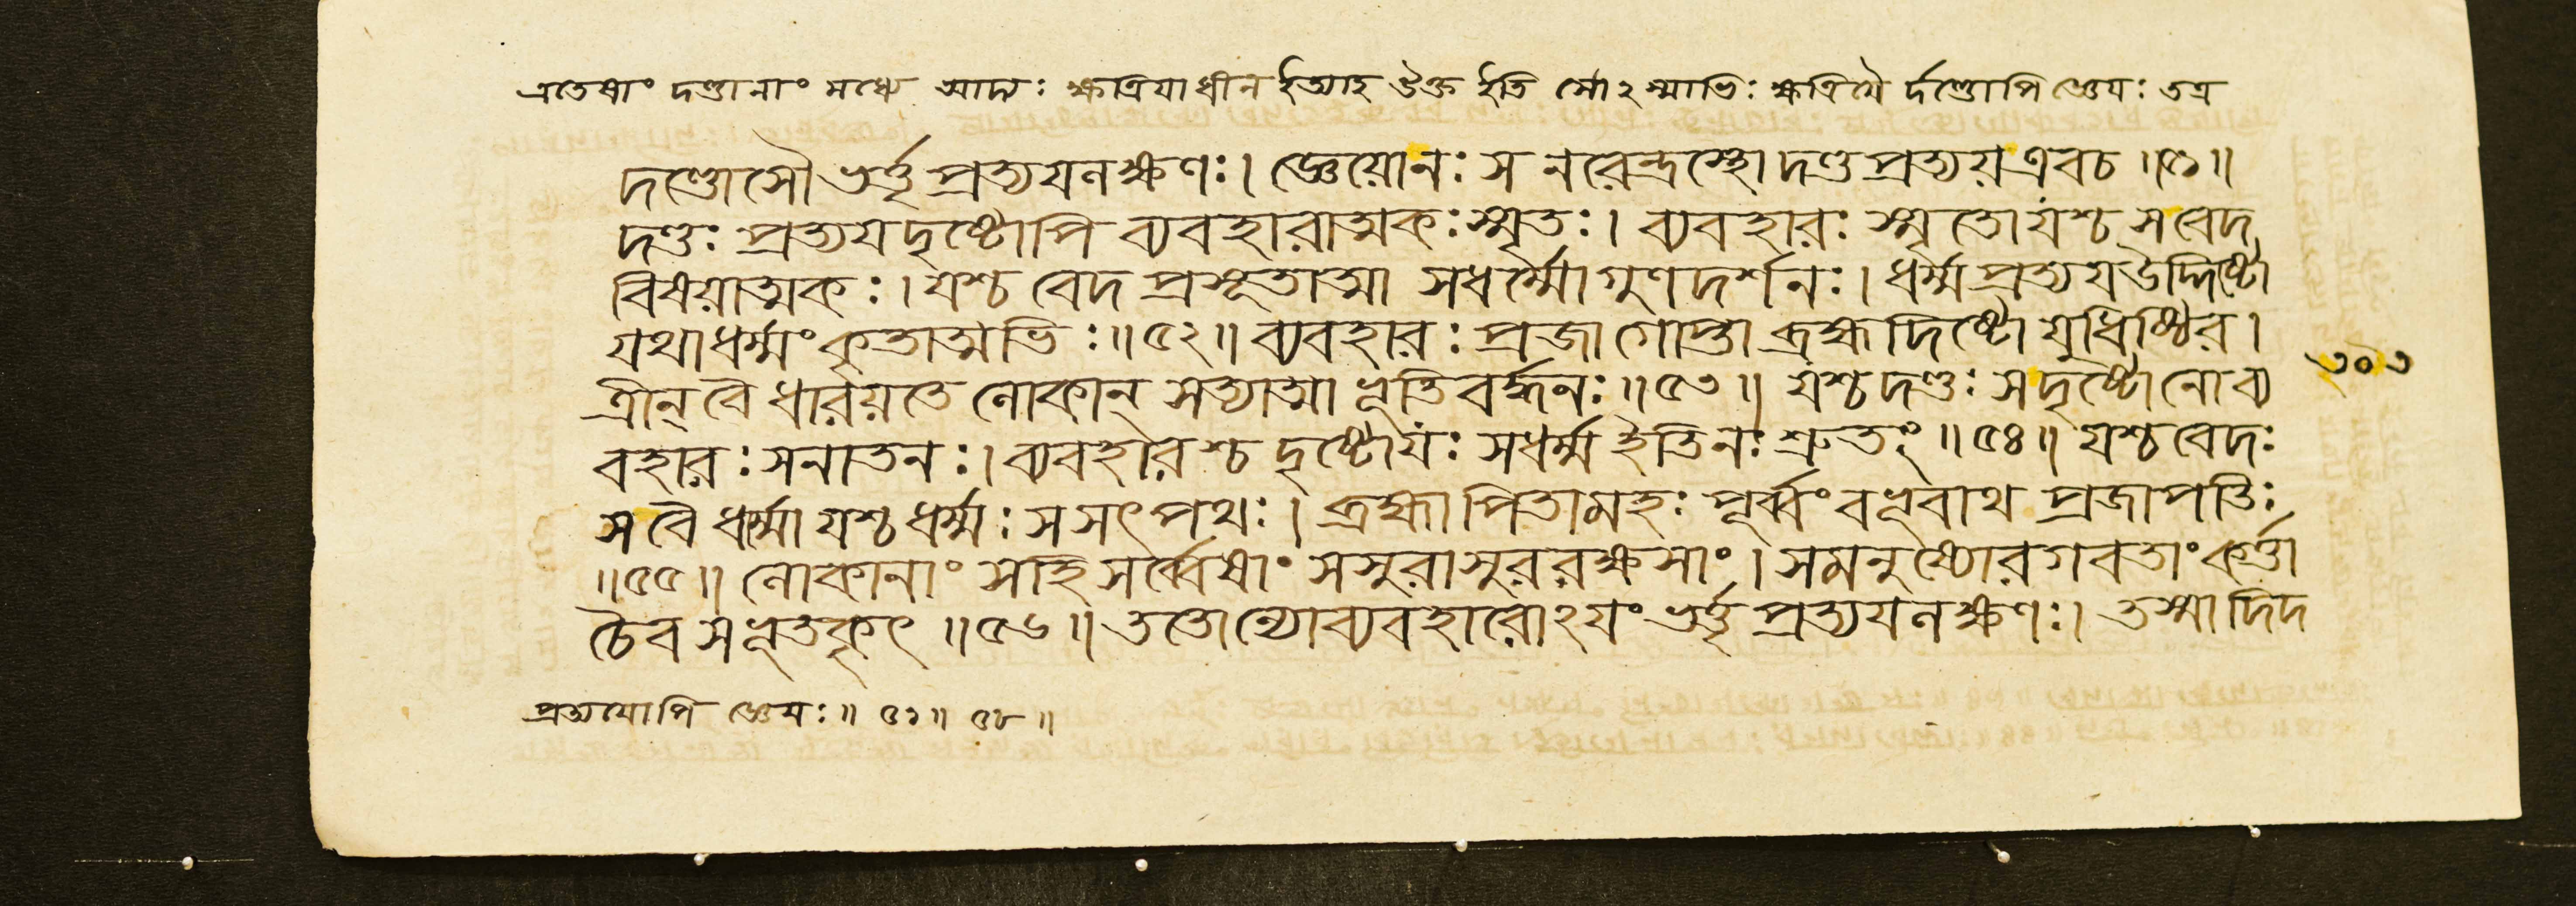 এতেষাং দণ্ডানাং মধ্যে আদ্যঃ ক্ষত্রিযাধীন ইত্যাহ উক্ত ইতি সোঽস্মাভিঃ ক্ষত্রিযৈ র্দণ্ডোপি জ্ঞেযঃ তত্র
দণ্ডোসৌ ভর্ত্তৃপ্রত্যযলক্ষণঃ। জ্ঞেয়োনঃ স নরেন্দ্রস্থো দণ্ডপ্রত্যয় এবচ ॥৫১॥
দণ্ডঃ প্রত্যযদৃষ্টোপি ব্যবহারাত্মকঃ স্মৃতঃ। ব্যবহারঃ স্মৃতো যশ্চ সবেদ
বিষয়াত্মকঃ। যশ্চ বেদ প্রসূতাত্মা সধর্ম্মোগুণদর্শনঃ। ধর্ম্মপ্রত্যযউদ্দিষ্টো
যথাধর্ম্মং কৃতাত্মভিঃ॥৫২॥ ব্যবহারঃ প্রজাগোপ্তা ব্রহ্মদিষ্টো যুধিষ্ঠির।
ত্রীন্ বৈ ধারয়তে লোকান্ সত্যাত্মা ভূতিবর্দ্ধনঃ॥৫৩॥ যশ্চদণ্ডঃ সদৃষ্টোনোব্য
বহারঃ সনাতনঃ। ব্যবহারশ্চ দৃষ্টোযঃ সধর্ম্ম ইতিনঃ শ্রুতং॥৫৪॥ যশ্চবেদঃ
সবৈ ধর্ম্মো যশ্চধর্ম্মঃ সসৎপথঃ। ব্রহ্মাপিতামহঃ পূর্ব্বং বভূবাথ প্রজাপতিঃ
॥৫৫॥ লোকানাং সহি সর্ব্বেষাং সসুরাসুররক্ষসাং। সমনুষ্যোরগবতাং কর্ত্তা
চৈব সভূতকৃৎ ॥৫৬॥ ততোন্যোব্যবহারোঽযং ভর্ত্তৃপ্রত্যযলক্ষণঃ। তস্মাদিদ
৩০৩
প্রত্যযোপি জ্ঞেযঃ॥ ৫১॥ ৫৮॥